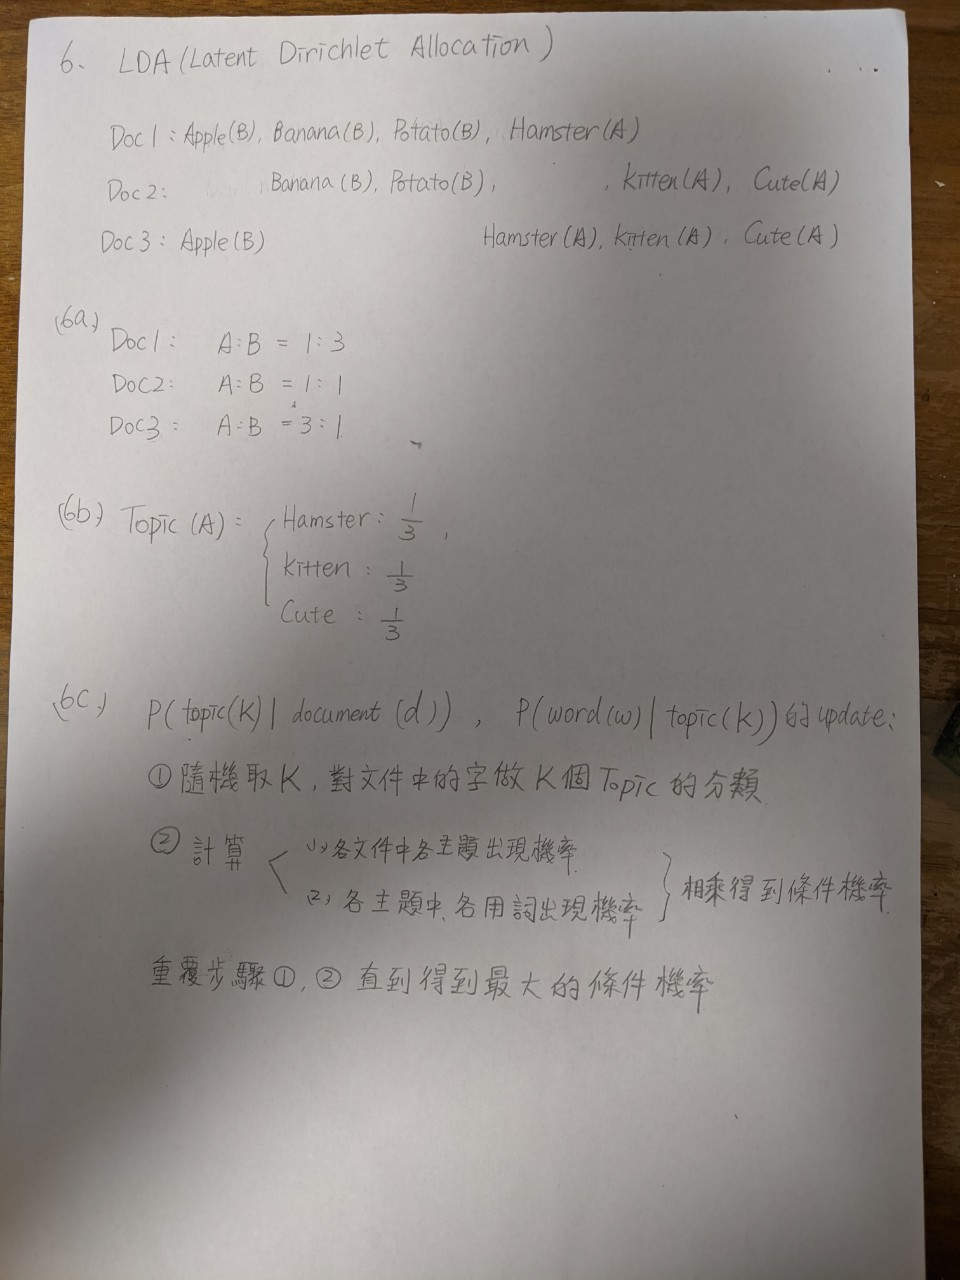 6、 LDA (Latent Dirichlet Allocation)
Doc 1 : Apple(B), Banana(B), Potato(B), Hamster(A)
Doc 2: Banana (B), Potato(B), , Kitten(A), Cute(A)
Doc 3 : Apple(B) Hamster(A), kitten(A), Cute(A)
(6a) Doc 1 : A:B = 1:3
Doc2: A:B = 1:1
Doc3 : A:B = 3:1
(6b) Topic (A) : { Hamster : 1/3 ,
kitten : 1/3
Cute : 1/3
(6c) P(topic(k) | document (d)) , P(word(w) | topic(k)) 的update:
① 隨機取K, 對文件中的字做K個Topic的分類
② 計算 < (1) 各文件中各主題出現機率
(2) 各主題中、各用詞出現機率 } 相乘得到條件機率
重覆步驟①, ② 直到得到最大的條件機率